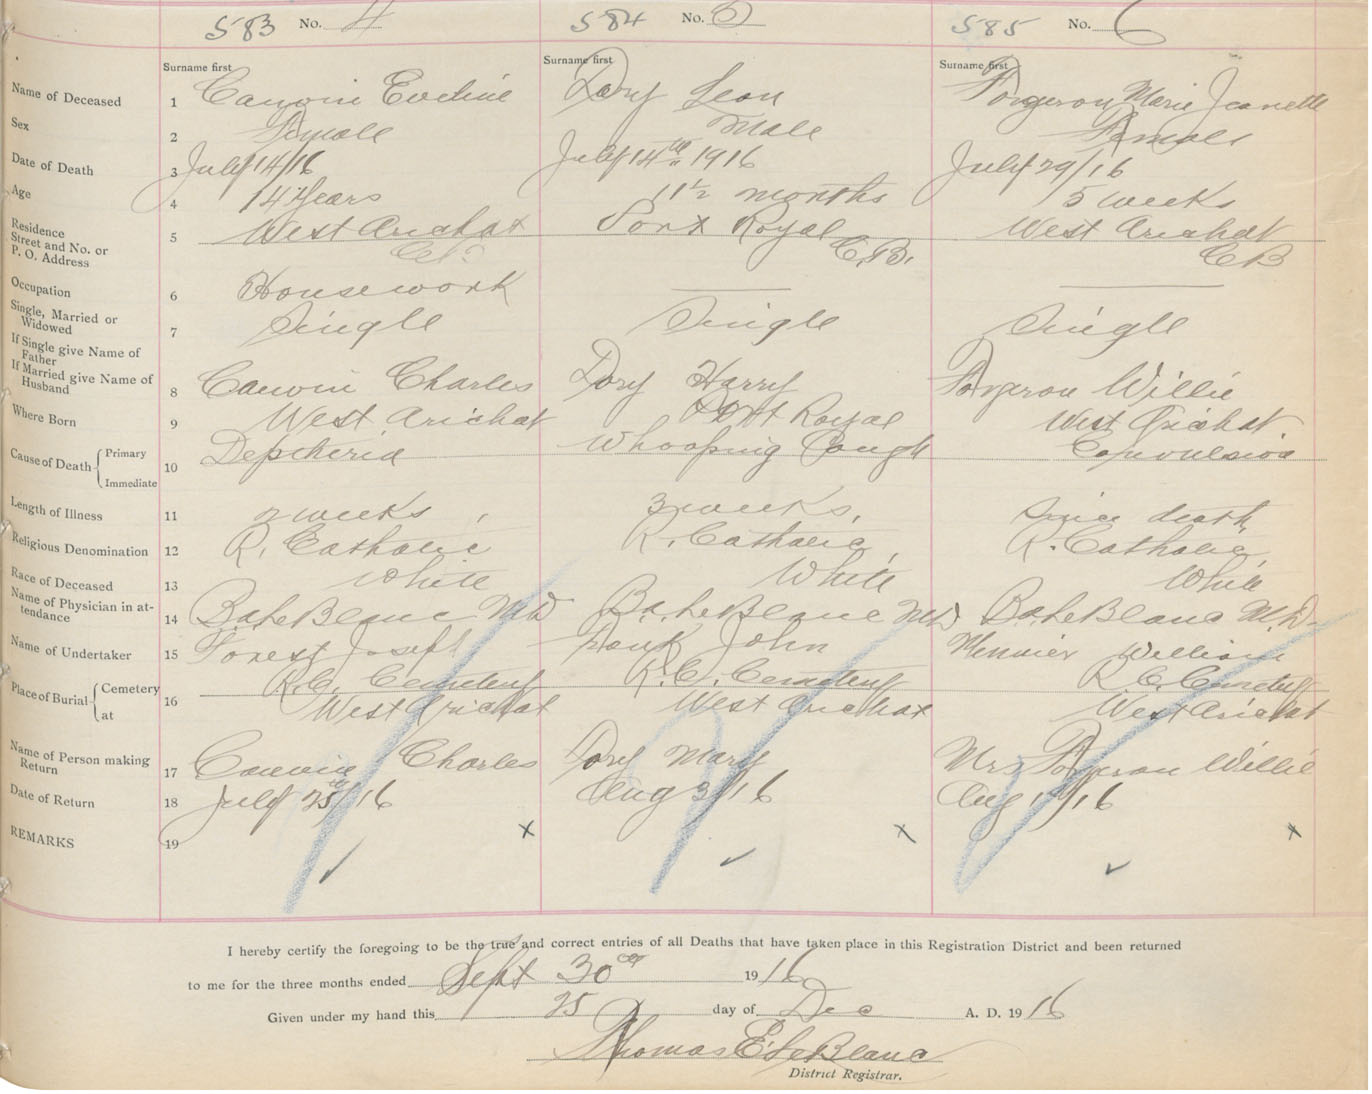 583 No. 4 584 No. 5 585 No. 6
Surname first Surname first Surname first
Name of Deceased 1 Cauvin Eveline Dory Leon Forgeron Marie Jeanette
Sex 2 Female Male Female
Date of Death 3 July 14/16 July 14th 1916 July 29/16
Age 4 14 Years 11½ months 5 weeks
Residence
Street and No. or
P. O. Address 5 West Arichat Port Royal West Arichat
C.B. C.B. CB
Occupation 6 Housework
Single, Married or
Widowed 7 Single Single Single
If Single give Name of
Father
If Married give Name of
Husband 8 Cauvin Charles Dory Harry Forgeron Willie
Where Born 9 West Arichat Port Royal West Arichat
Cause of Death { Primary 10 Deptheria Whooping Cough Convulsion
Immediate
Length of Illness 11 2 weeks, 3 weeks, death
Religious Denomination 12 R. Catholic R. Catholic, R. Catholic
Race of Deceased 13 White White White
Name of Physician in at-
tendance 14 B.A. LeBlanc M.D B.A. LeBlanc M.D B.A. LeBlanc M.D.
Name of Undertaker 15 Forest Joseph John William
Place of Burial { Cemetery 16 R.C. Cemetery R.C. Cemetery R.C. Cemetery
at West Arichat West Arichat West Arichat
Name of Person making
Return 17 Cauvin Charles Dory Mary Mrs Forgeron Willie
Date of Return 18 July 25/16 Aug 3/16 Aug 1/16
REMARKS 19 x x x
I hereby certify the foregoing to be the true and correct entries of all Deaths that have taken place in this Registration District and been returned
to me for the three months ended Sept 30th 1916
Given under my hand this 25 day of Dec A. D. 1916
Thomas E. LeBlanc
District Registrar.